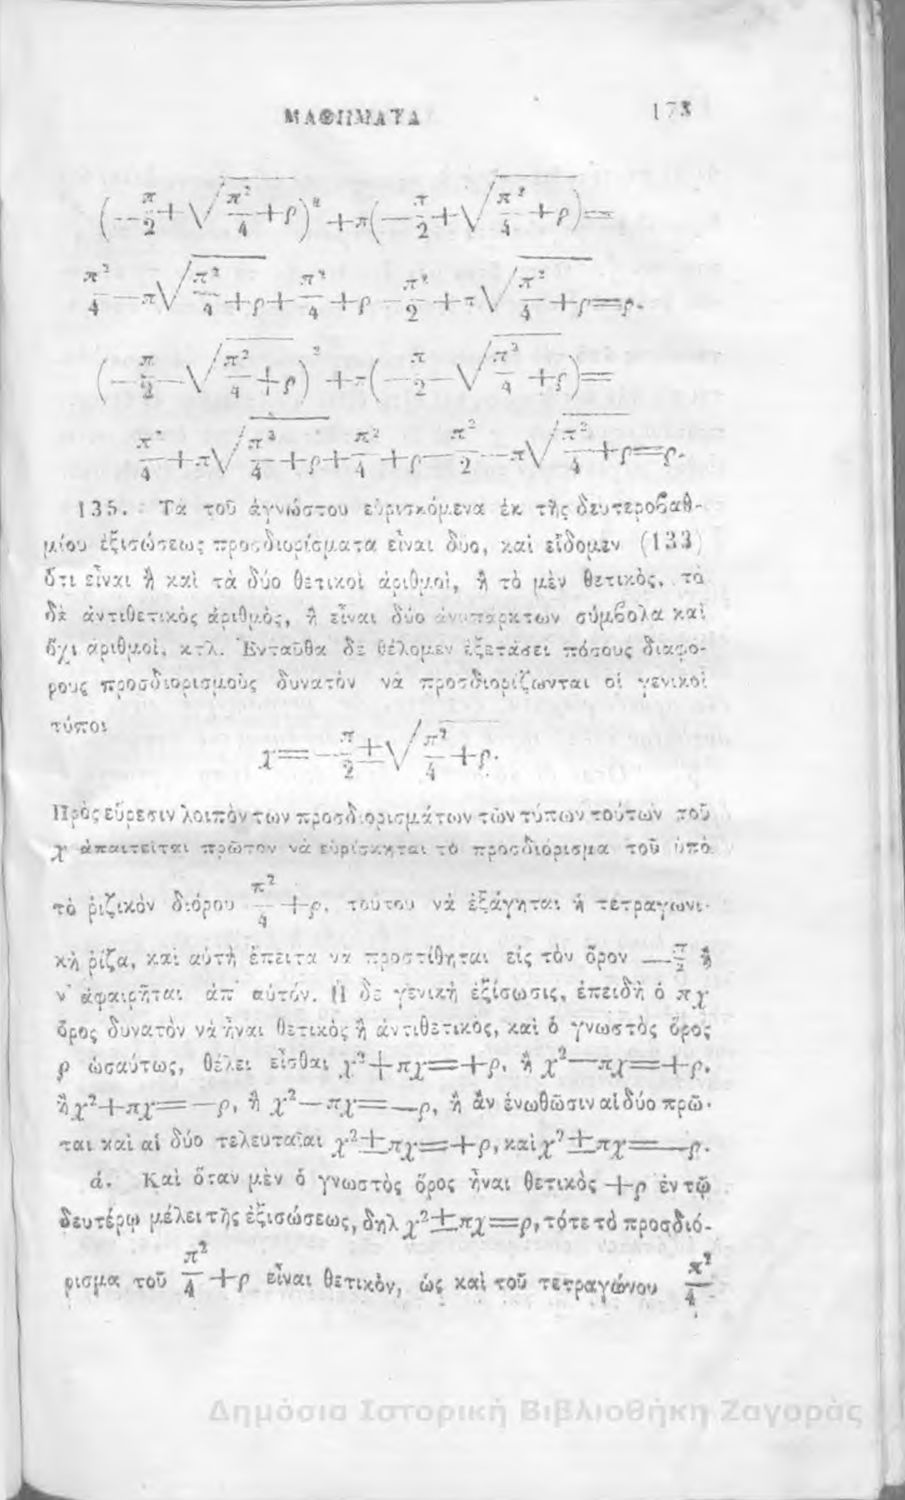 ΜΑΘΗΜΑΤΑ 173
(—π/2+√π²/4+ρ)²+π(—π/2+√π²/4+ρ)=
π²/4—π√π²/4+ρ+π²/4+ρ—π²/2+π√π²/4+ρ=ρ.
(—π/2—√π²/4+ρ)²+π(—π/2—√π²/4+ρ)=
π²/4+π√π²/4+ρ+π²/4+ρ—π²/2—π√π²/4+ρ=ρ.
135. Τὰ τοῦ ἀγνώστου εὑρισκόμενα ἐκ τῆς δευτεροβαθ-
μίου ἐξισώσεως προσδιορίσματα εἶναι δύο, καὶ εἴδομεν (133)
ὅτι εἶναι ἢ καὶ τὰ δύο θετικοὶ ἀριθμοὶ, ἢ τὸ μὲν θετικὸς, τὸ
δὲ ἀντιθετικὸς ἀριθμὸς, ἢ εἶναι δύο ἀνυπάρκτων σύμβολα καὶ
ὄχι ἀριθμοὶ, κτλ. Ἐνταῦθα δὲ θέλομεν ἐξετάσει πόσους διαφό-
ρους προσδιορισμοὺς δυνατὸν νὰ προσδιορίζωνται οἱ γενικοὶ
τύποι
χ=—π/2±√π²/4+ρ.
Πρὸς εὕρεσιν λοιπὸν των προσδιορισμάτων τῶν τύπων τούτων τοῦ
χ ἀπαιτεῖται πρῶτον νὰ εὑρίσκηται τὸ προσδιόρισμα τοῦ ὑπὸ
τὸ ῥιζικὸν διόρου π²/4+ρ, τούτου νὰ ἐξάγηται ἡ τετραγωνι-
κὴ ῥίζα, καὶ αὐτὴ ἔπειτα νὰ προστίθηται εἰς τὸν ὅρον —π/2 ἢ
ν' ἀφαιρῆται ἀπ' αὐτόν. Ἡ δὲ γενικὴ ἐξίσωσις, ἐπειδὴ ὁ πχ
ὅρος δυνατὸν νὰ ἦναι θετικὸς ἢ ἀντιθετικὸς, καὶ ὁ γνωστὸς ὅρος
ρ ὡσαύτως, θέλει εἶσθαι χ²+πχ=+ρ, ἢ χ²—πχ=+ρ,
ἢ χ²+πχ=—ρ, ἢ χ²—πχ=—ρ, ἢ ἂν ἑνωθῶσιν αἱ δύο πρῶ-
ται καὶ αἱ δύο τελευταῖαι χ²±πχ=+ρ, καὶ χ²±πχ=—ρ.
ά. Καὶ ὅταν μὲν ὁ γνωστὸς ὅρος ἦναι θετικὸς +ρ ἐν τῷ
δευτέρῳ μέλει τῆς ἐξισώσεως, δηλ χ²±πχ=ρ, τότε τὸ προσδιό-
ρισμα τοῦ π²/4+ρ εἶναι θετικὸν, ὡς καὶ τοῦ τετραγώνου π²/4.
Δημόσια Ιστορική Βιβλιοθήκη Ζαγοράς